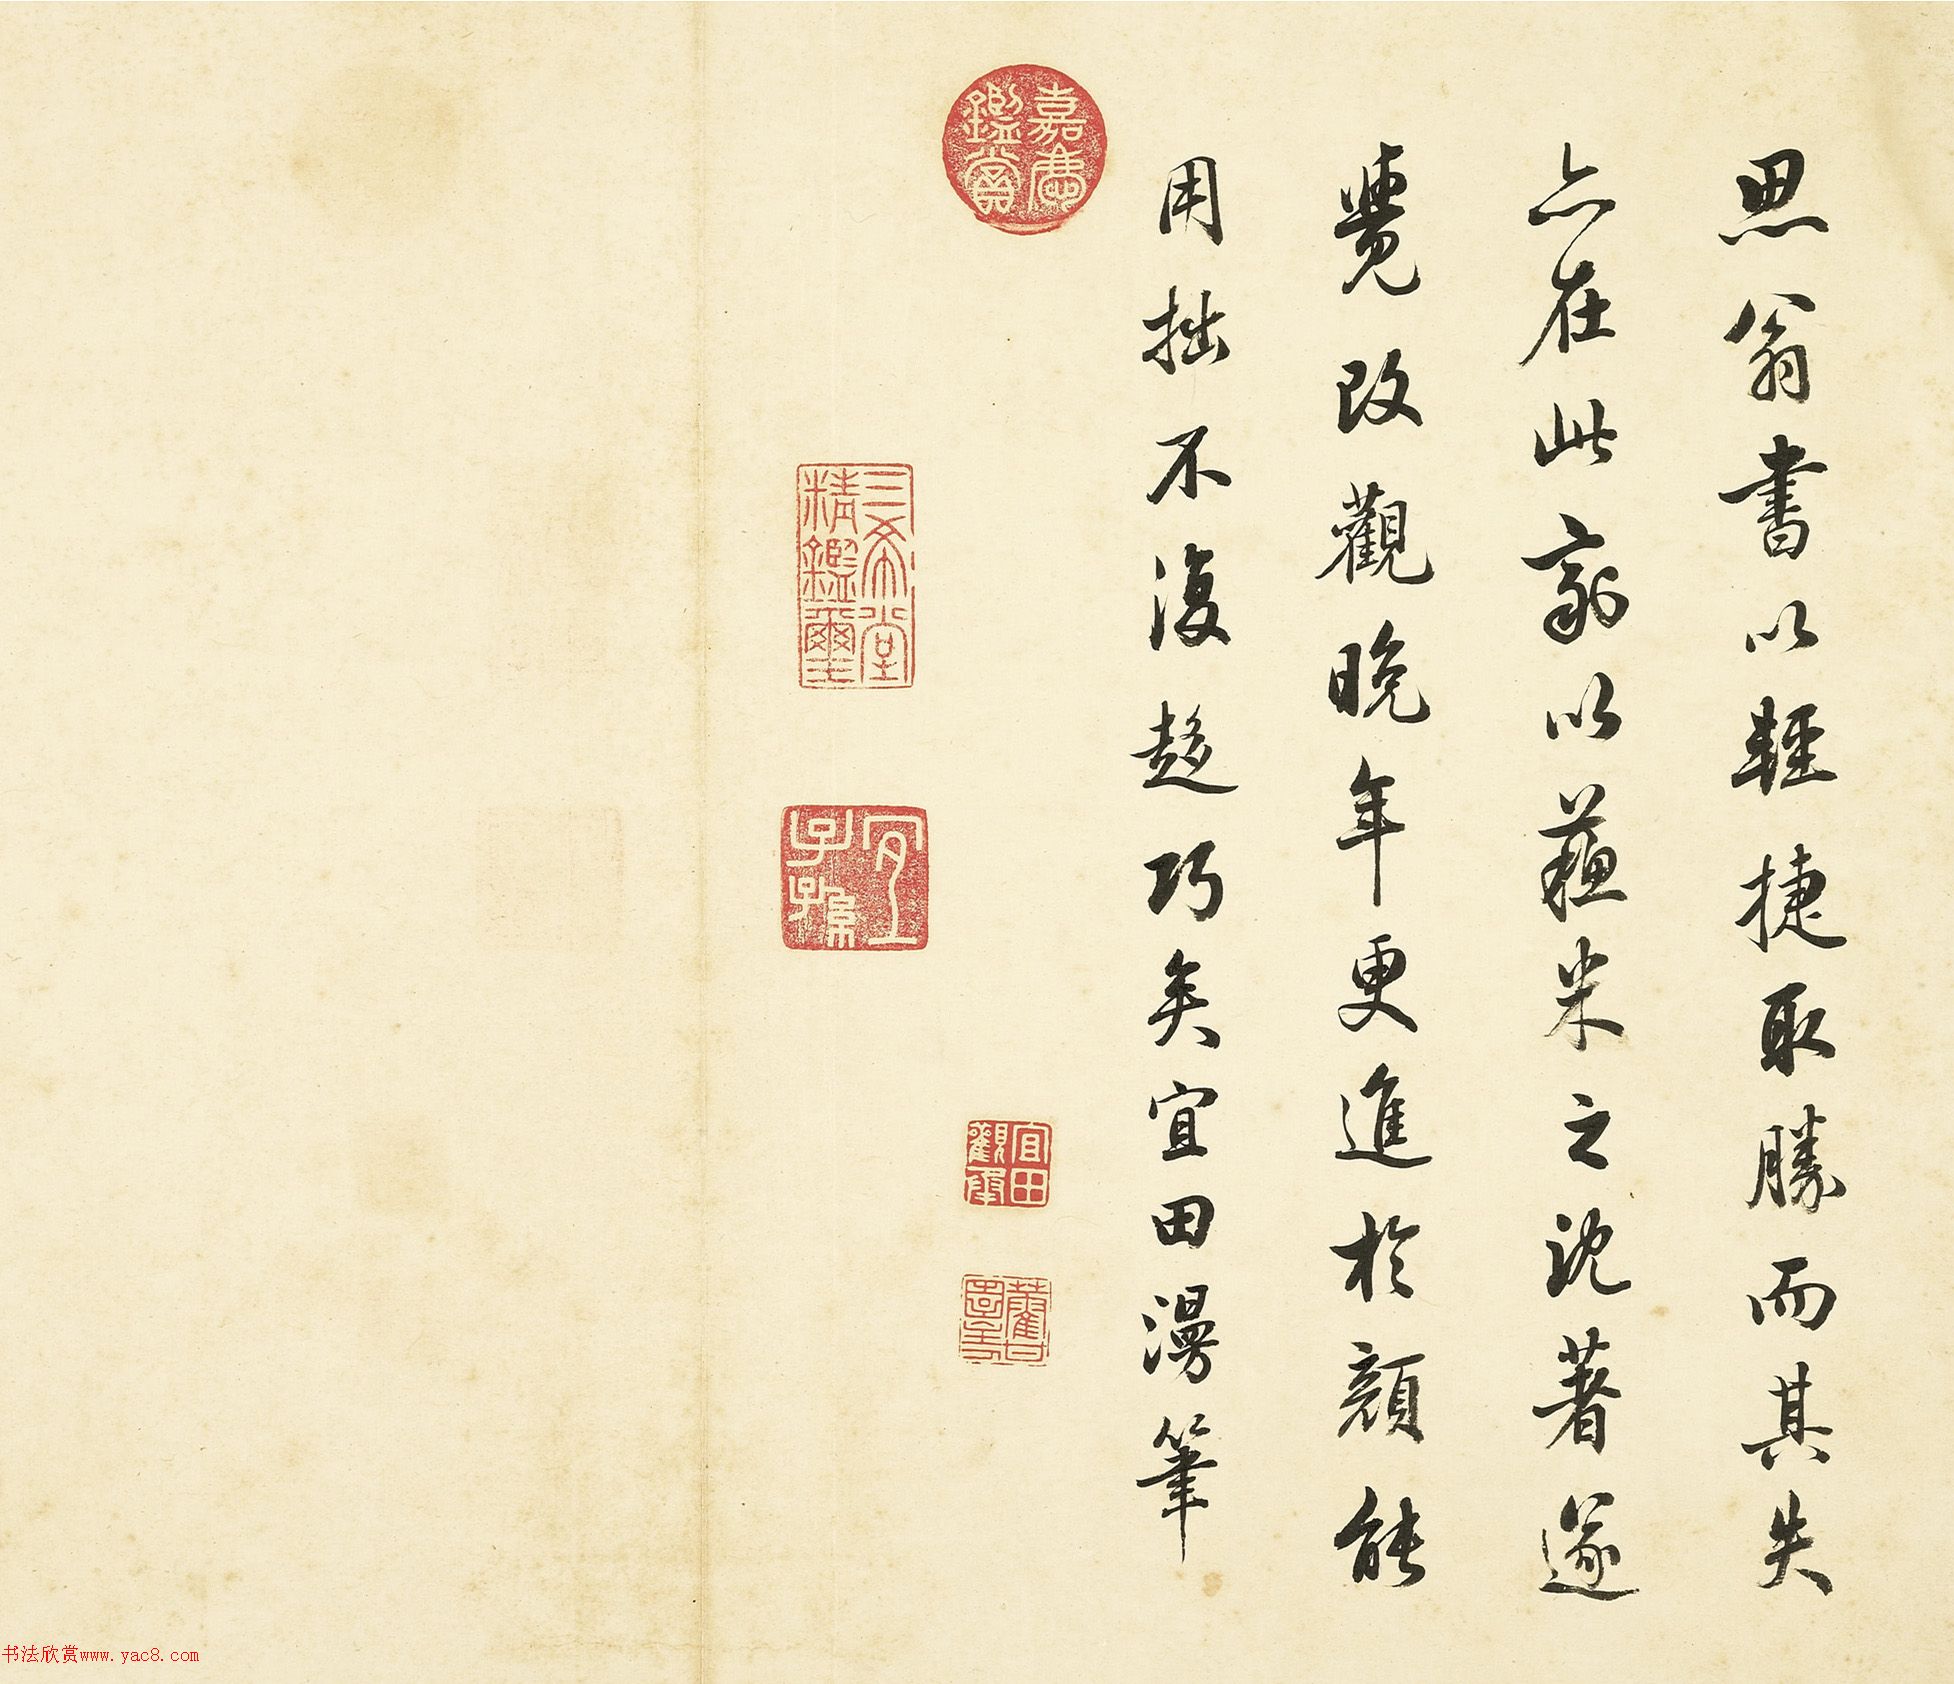 思翁書以輕捷取勝而其失
亦在此敵以蘇米之沈著遂
覺改觀晚年更進於顏能
用拙不復趍巧矣宜田漫筆
嘉慶鑑賞
三希堂精鑑璽
宜子孫
宜田
书法欣赏www.yac8.com